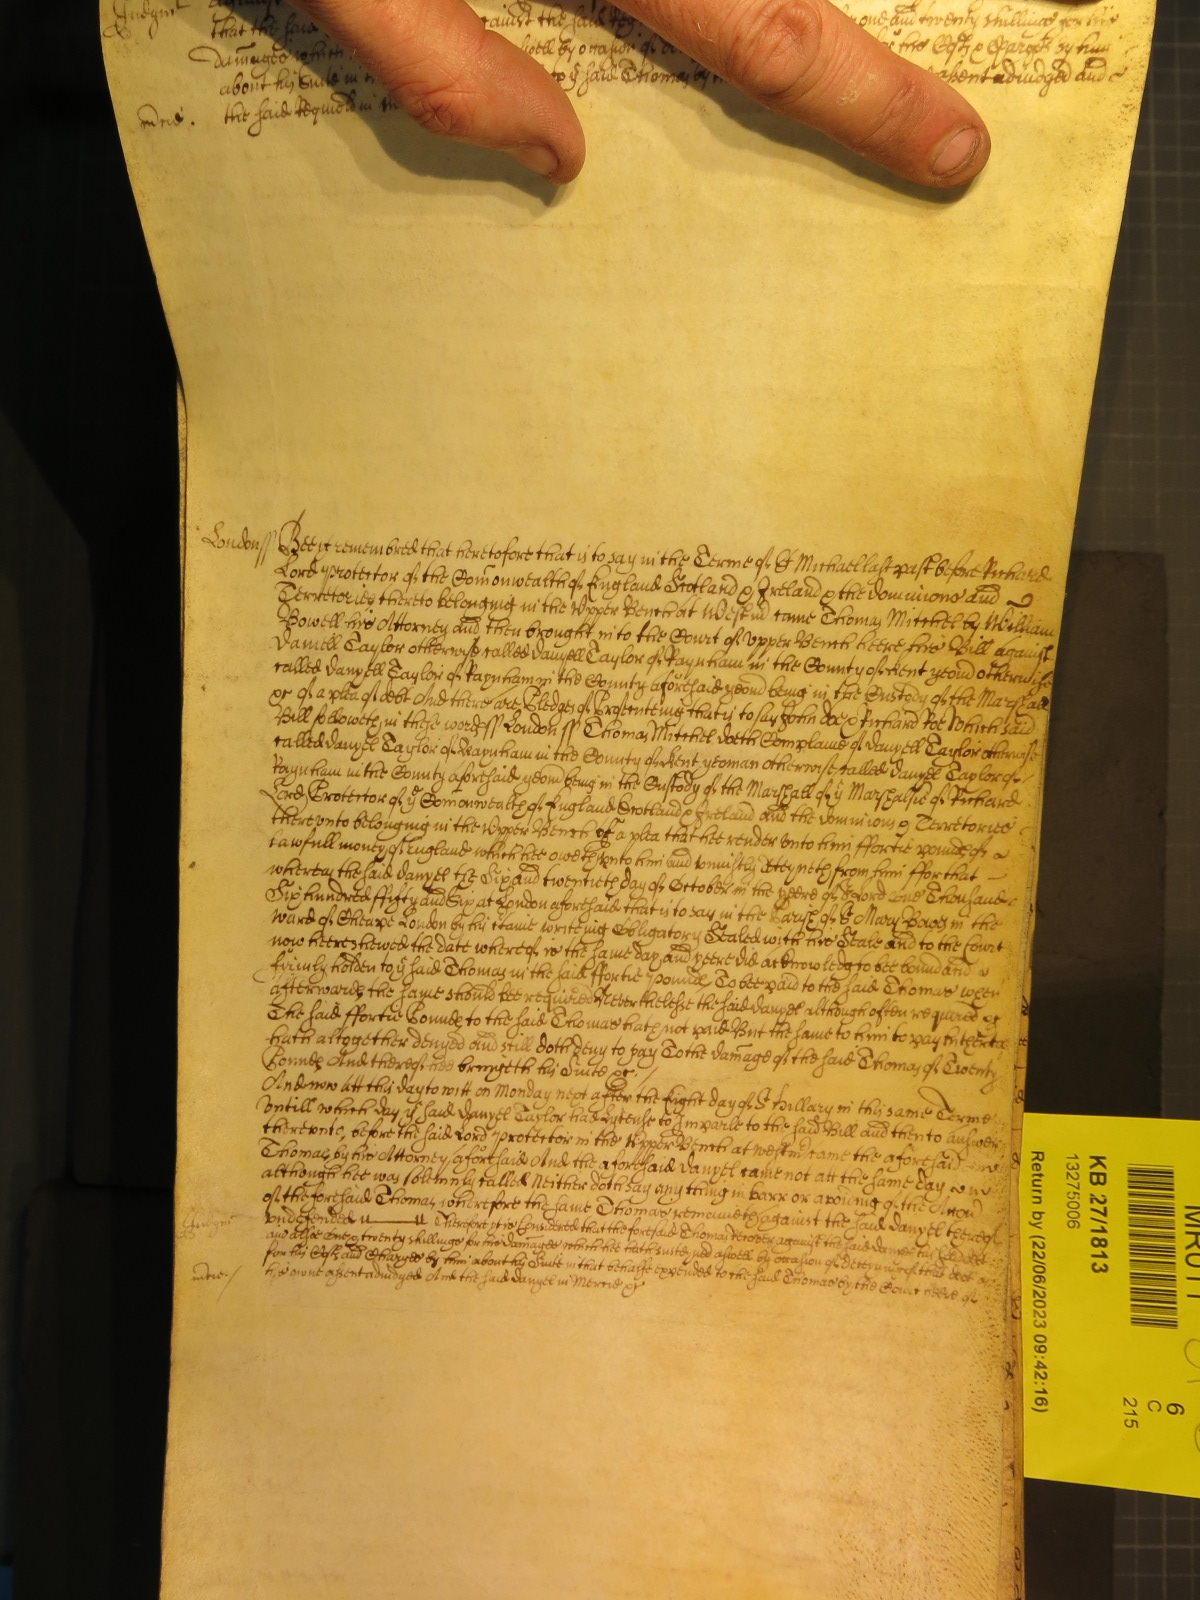 Judgmt
that the said against the said one and twenty shillings for his
damages which aswell by occasion of the Costs & Charges by him
about his Suite in said Thomas by the assent adiudged and
mercie. the said
London ss Bee it remembred that heretofore that is to say in the Terme of St Michaell last past before Richard
Lord Protector of the Comonwealth of England Scotland & Ireland & the dominions and
Territories thereto belonging in the Upper Bench at Westm came Thomas Mitchel by William
Powell his Attorney and then brought into the Court of Upper Bench heere his Bill against
Daniell Taylor otherwise called Danyell Taylor of Raynham in the County of Kent yeom otherwise
called Danyell Taylor of Raynham in the County aforesaid yeom being in the Custody of the Marshall
&c of a plea of debt And there are Pledges of Prosecuting that is to say John doe & Richard Roe Which said
Bill followeth in these words ss London ss Thomas Mitchel doeth Complaine of Danyell Taylor otherwise
called Danyel Taylor of Raynham in the County of Kent yeoman otherwise called Danyel Taylor of
Raynham in the County aforesaid yeom being in the Custody of the Marshall of ye Marshalsie of Richard
Lord Protector of ye Comonwealth of England Scotland & Ireland and the dominions & Territories
thereunto belonging in the Upper Bench of a plea that hee render unto him ffortie pounds of
lawfull money of England which hee oweth unto him and uniustly deteyneth from him ffor that
whereas the said Danyel the Six and twentieth day of October in the yeere of or Lord One Thousand
Six hundred ffifty and Six at London aforesaid that is to say in the Parish of St Mary Bow in the
ward of Cheape London by his certaine writeing Obligatory Sealed with his Seale and to the Court
now heere shewed the date whereof is the same day and yeere did acknowledg to bee bound and
firmly holden to ye said Thomas in the said ffortie pounds To bee paid to the said Thomas when
afterwards the same should bee required Neverthelesse the said Danyel although often required &c
The said ffortie Pounds to the said Thomas hath not paid But the same to him to pay hitherto
hath altogether denyed and still doth deny to pay To the damage of the said Thomas of Twenty
Pounds And thereof hee bringeth his Suite &c
And now att this day to witt on Monday next after the Eight day of St Hillary in this same Terme
Untill which day ye said Danyel Taylor had Lycense to Imparle to the said Bill and then to answer
thereunto, before the said Lord Protector in the Upper Bench at Westm came the aforesaid
Thomas by his Attorney aforesaid And the aforesaid Danyel came not att the same day
although hee was solemnly called Neither doth say any thing in barr or
of the foresaid Thomas wherefore the same Thomas remaineth against the said Danyel thereof
Judgmt undefended Therefore it is Considered that the foresaid Thomas recover against the said Danyel his
and alsoe One & twenty shillings for his damages which hee hath susteyned aswell by occasion of deteyning of that debt as
for his Costs and Charges by him about his Suite in that behalfe expended to the said Thomas by the Court heere of
mercie his owne assent adiudged And the said Danyel in Mercie &c
KB 27/1813
13275006
Return by (22/06/2023 09:42:16)
6
C
215